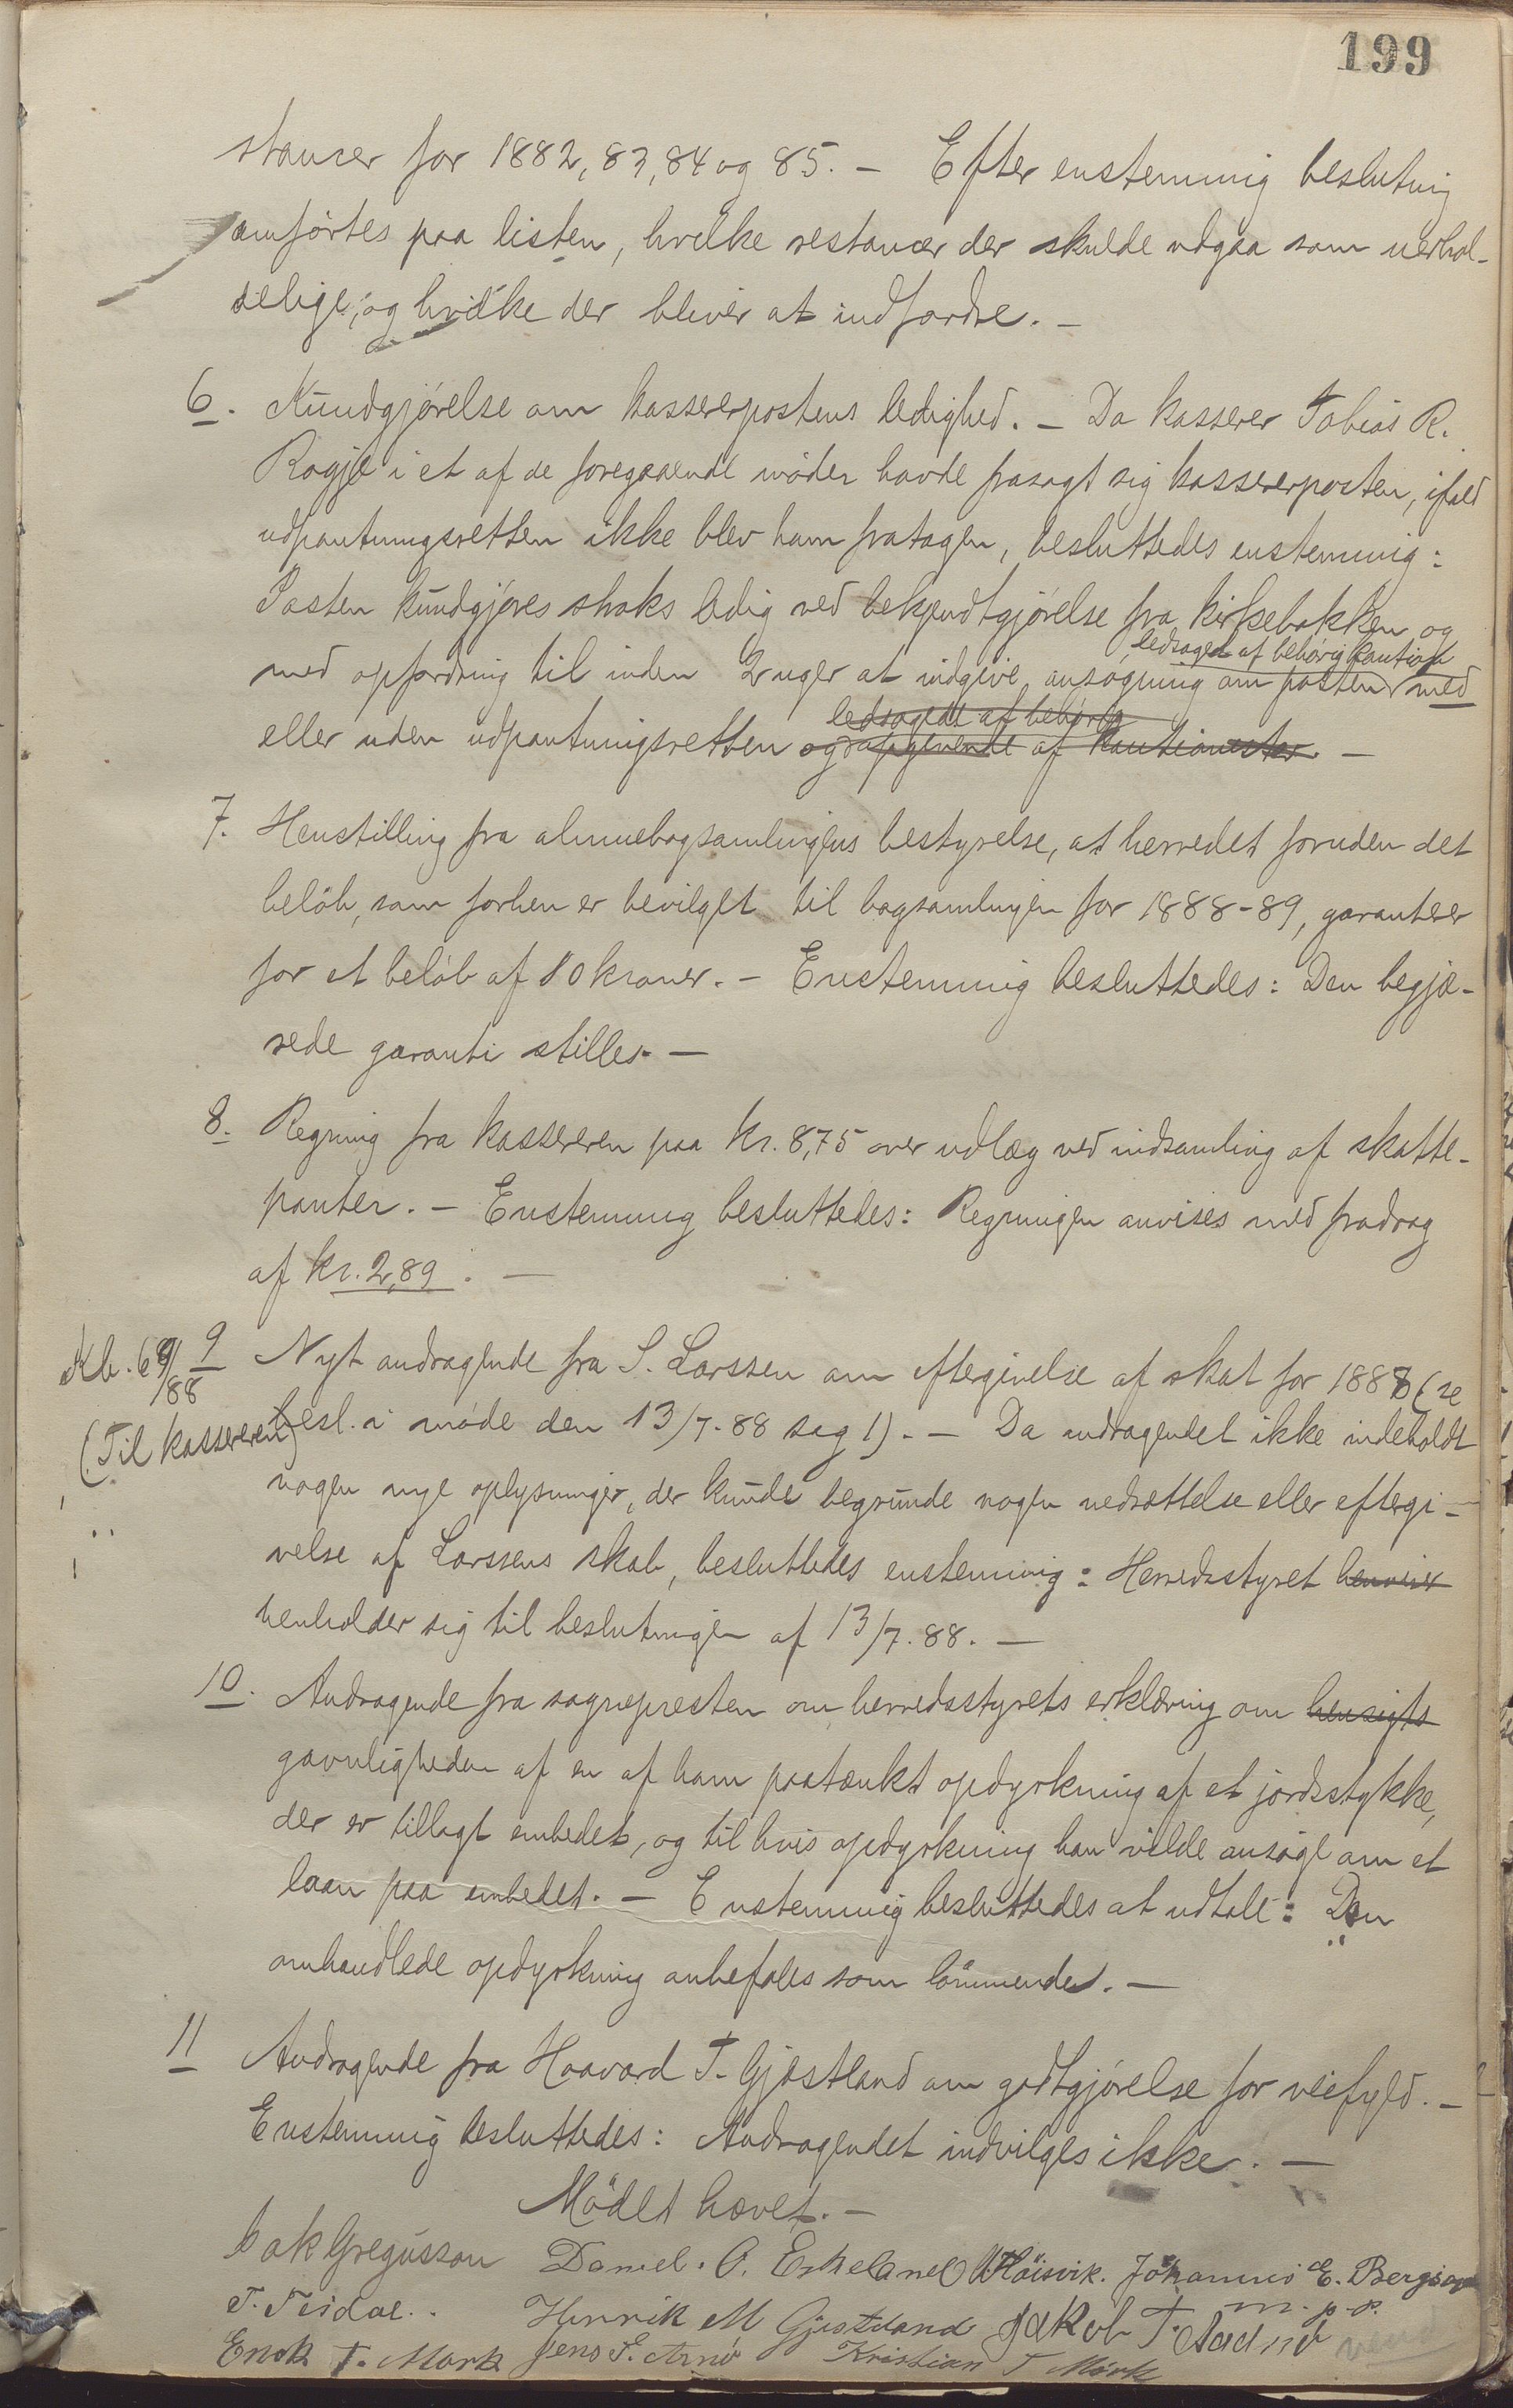 199
stanser for 1882, 83, 84 og 85. – Efter enstemmig beslutnig
anførtes paa listen, hvilke restancer der skulde udgaa som uerhol-
delige, og hvilke der bliver at indfordre. –
6. Kundgjørelse om kassererpostens ledighed. – Da kasserer Tobias R.
Rogje i et af de foregaaende møder havde frasagt sig kassererposten, ifald
udpantningsretten ikke blev ham fratagen, besluttedes enstemmig:
Posten kundgjøres straks ledig ved bekjendtgjørelse fra kirkebakken og
, ledsaget af behørig kaution
med opfordring til inden 2 uger at indgive ansøgning om posten med
ledsaget af behørig
eller uden udpantningsretten og opgivende af kautionister. –
7. Henstilling fra almuebogsamlingens bestyrelse, at herredet foruden det
beløb, som forhen er bevilget til bogsamlingen for 1888-89, garanterer
for et beløb af 80 kroner. – Enstemmig besluttedes: Den begjæ-
rede garanti stilles. –
8. Regning fra kassereren paa kr. 8,75 over udlæg ved indsamling af skatte-
panter. – Enstemmig besluttedes: Regningen anvises med fradrag
af kr. 2,89. –
Kb. 69/88
9 Nyt andragende fra S. Larssen om eftergivelse af skat for 1888 (se
(Til kassereren)
besl. i møde den 13/7-88 sag 1). – Da andragendet ikke indeholdt
nogen nye oplysninger, der kunde begrunde nogen nedsættelse eller eftergi-
velse af Larssens skat, besluttedes enstemmig: Herredsstyret henviser
henholder sig til beslutningen af 13/7. 88. –
10. Andragende fra sognepresten om herredsstyrets erklæring om hensigts
gavnligheden af en af ham paatænkt opdyrkning af et jordstykke,
der er tillagt embedet, og til hvis opdyrkning han vilde ansøge om et
laan paa embedet. – Enstemmig besluttedes at udtale: Den
omhandlede opdyrkning anbefales som lønnende. –
11 Andragende fra Haavard T. Gjæstland om godtgjørelse for veifyld. –
Enstemmig besluttedes: Andragendet indvilges ikke. –
Mødet hævet. –
Isak Gregusson Daniel. O. Eskeland W Høisvik. Johannes E. Bergsvog
m. p. p.
T. Teidal. Henrik M Gjestland Jakob T. Aadnø
Enok T. Mork Jens S. Arnø Kristian T Mørk